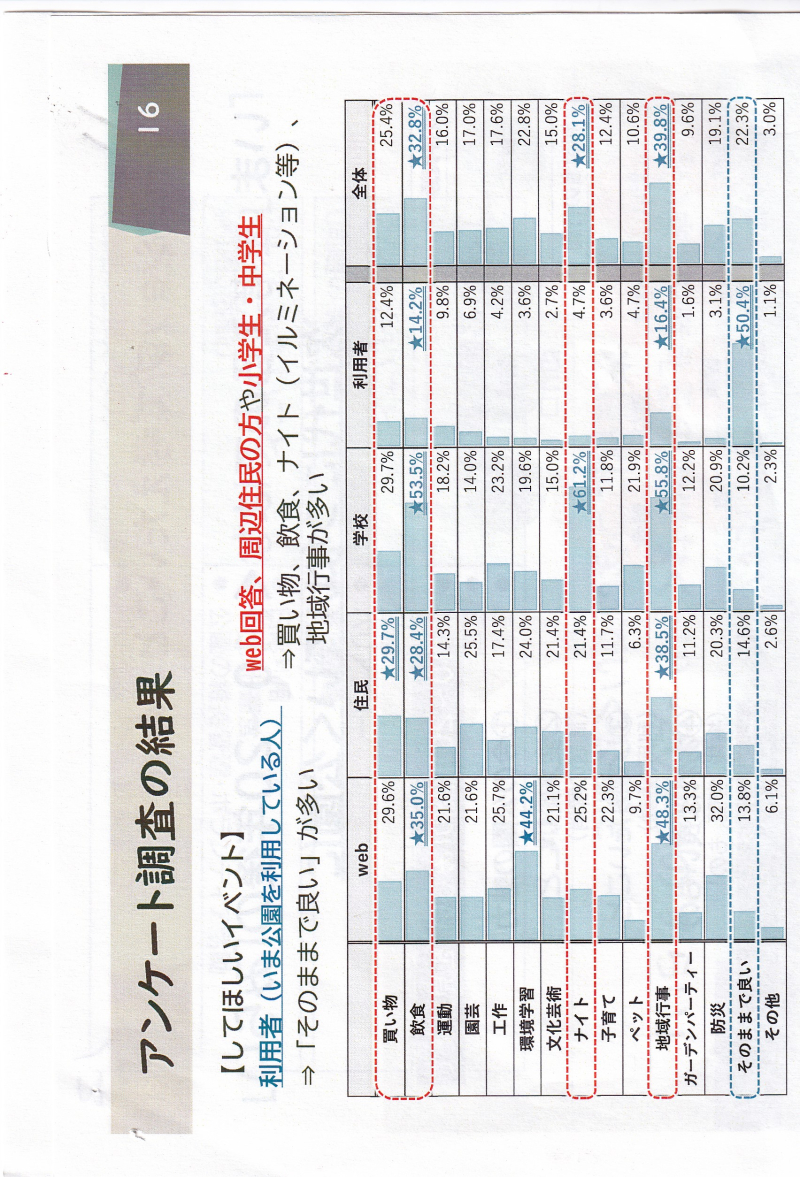 アンケート調査の結果
16
【してほしいイベント】
利用者（いま公園を利用している人）
⇒「そのままで良い」が多い
web回答、周辺住民の方や小学生・中学生
⇒買い物、飲食、ナイト（イルミネーション等）、
地域行事が多い
web 住民 学校 利用者 全体
買い物 29.6% ★29.7% 29.7% 12.4% 25.4%
飲食 ★35.0% ★28.4% ★53.5% ★14.2% ★32.8%
運動 21.6% 14.3% 18.2% 9.8% 16.0%
園芸 21.6% 25.5% 14.0% 6.9% 17.0%
工作 25.7% 17.4% 23.2% 4.2% 17.6%
環境学習 ★44.2% 24.0% 19.6% 3.6% 22.8%
文化芸術 21.1% 21.4% 15.0% 2.7% 15.0%
ナイト 25.2% 21.4% ★61.2% 4.7% ★28.1%
子育て 22.3% 11.7% 11.8% 3.6% 12.4%
ペット 9.7% 6.3% 21.9% 4.7% 10.6%
地域行事 ★48.3% ★38.5% ★55.8% ★16.4% ★39.8%
ガーデンパーティー 13.3% 11.2% 12.2% 1.6% 9.6%
防災 32.0% 20.3% 20.9% 3.1% 19.1%
そのままで良い 13.8% 14.6% 10.2% ★50.4% 22.3%
その他 6.1% 2.6% 2.3% 1.1% 3.0%